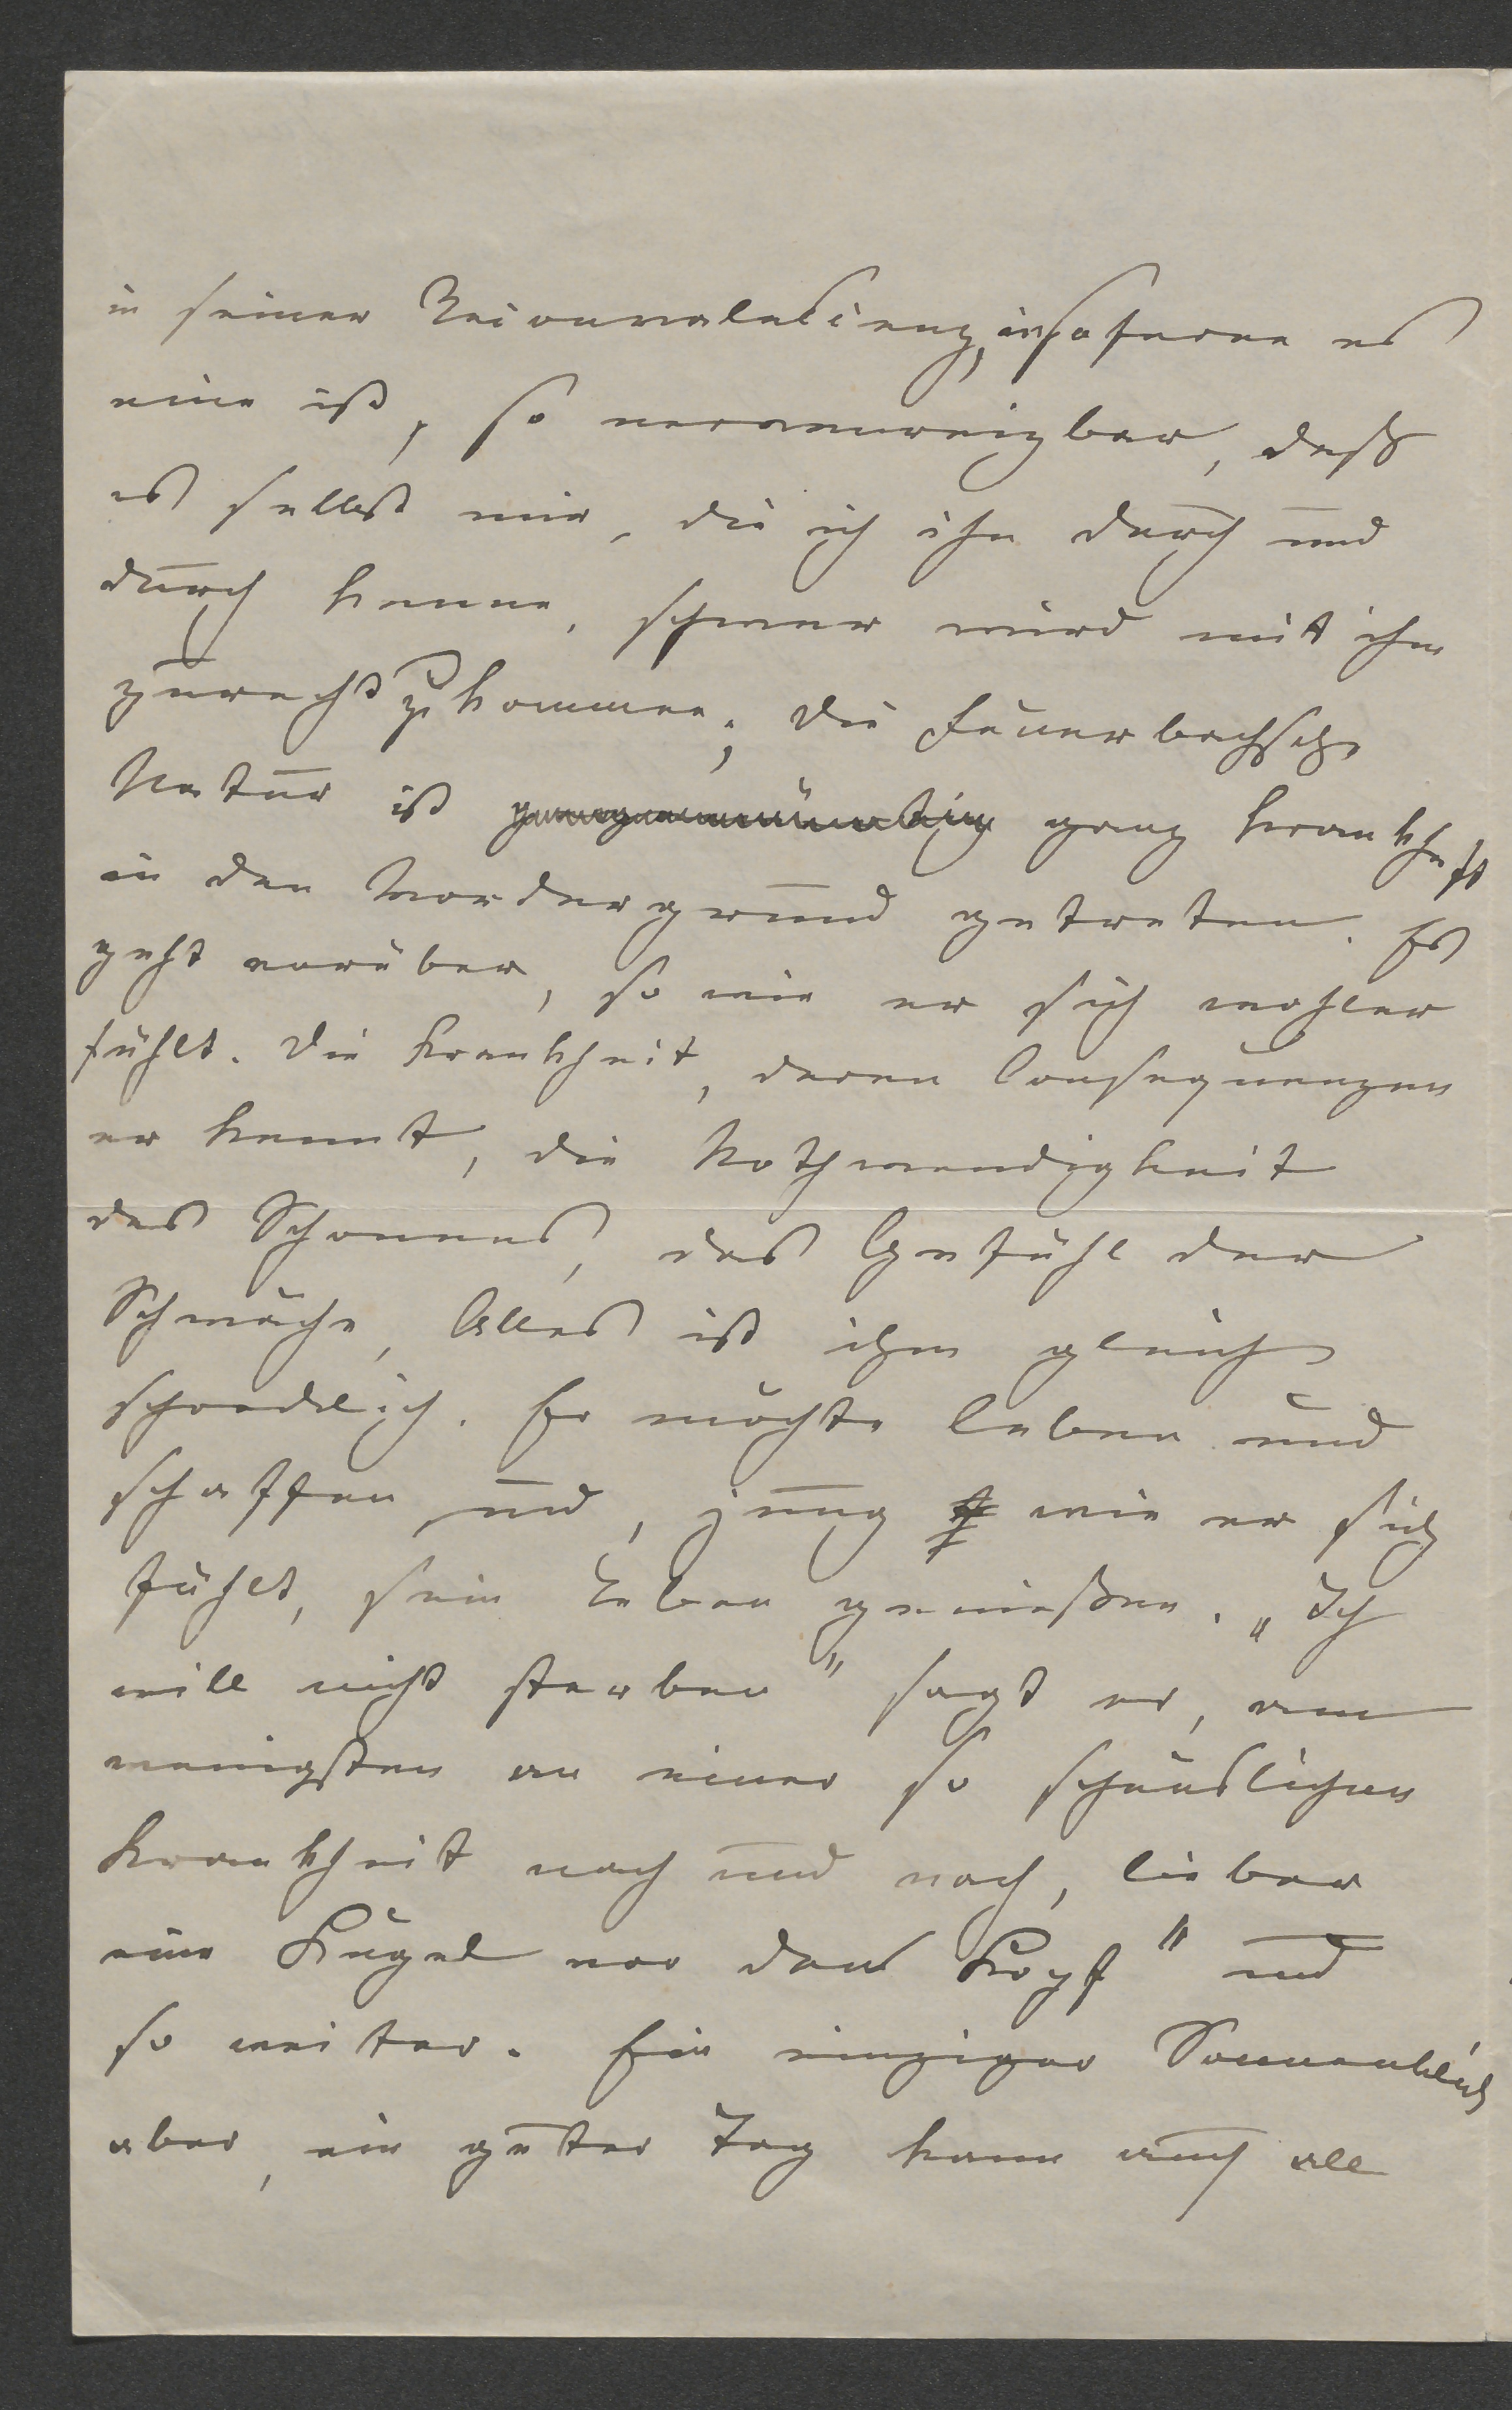 in seiner Reconvalescenz, insoferne es
eine ist, so nervenreizbar, daß
es selbst mir, die ich ihn durch und
durch kenne, schwer wird mit ihm
zurecht zu kommen; die Feuerbachsche
Natur ist ganz krankhaft
in den Vordergrund getreten. Es
geht vorüber, so wie er sich wohler
fühlt. Die Krankheit, deren Consequenzen
er kennt, die Nothwendigkeit
des Schonens, das Gefühl der
Schwäche, Alles ist ihm gleich
schrecklich. Er möchte leben und
schaffen und, jung wie er sich
fühlt, sein Leben genießen. „Ich
will nicht sterben" sagt er, am
wenigsten an einer so scheuslichen
Krankheit nach und nach, lieber
eine Kugel vor den Kopf" und
so weiter. Ein einziger Sonnenblick
aber, ein guter Tag kann auch all